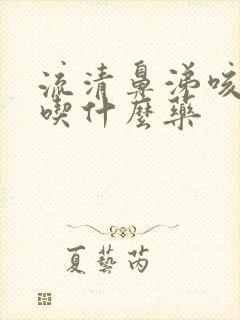 流清鼻涕咳
喫什麼藥
夏藝芮